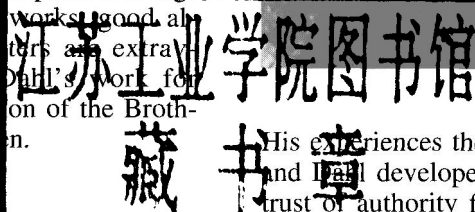 works, good al-
ters are extra
Dahl's work for
on of the Broth-
en.
江苏工业学院图书馆
藏书章
His experiences th
and Dahl develope
trust of authority f